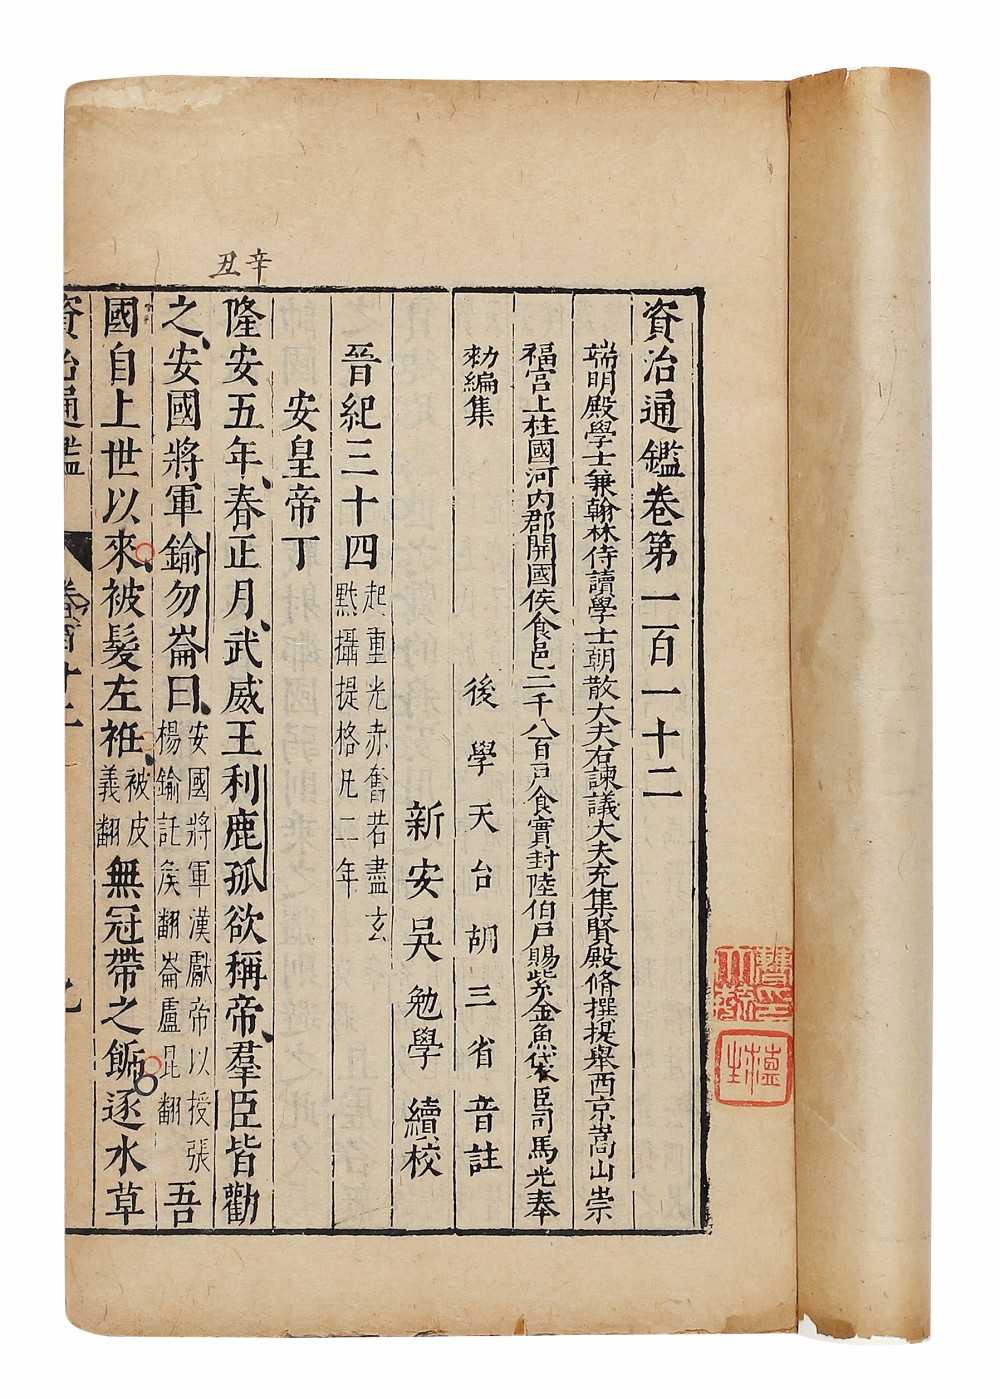 資治通鑑卷第一百一十二
端明殿學士兼翰林侍讀學士朝散大夫右諫議大夫充集賢殿脩撰提舉西京嵩山崇
福宮上柱國河內郡開國侯食邑二千八百戸食實封陸伯戸賜紫金魚袋臣司馬光奉
勑編集
後學天台胡三省音註
新安吳勉學續校
晉紀三十四
起重光赤奮若盡玄
黓攝提格凡二年
安皇帝丁
辛丑
隆安五年春正月武威王利鹿孤欲稱帝羣臣皆勸
之安國將軍鍮勿崙曰
安國將軍漢獻帝以授張
楊鍮託侯翻崙盧昆翻
吾
國自上世以來被髮左袵
被皮
義翻
無冠帶之飾逐水草
資治通鑑
卷百十二